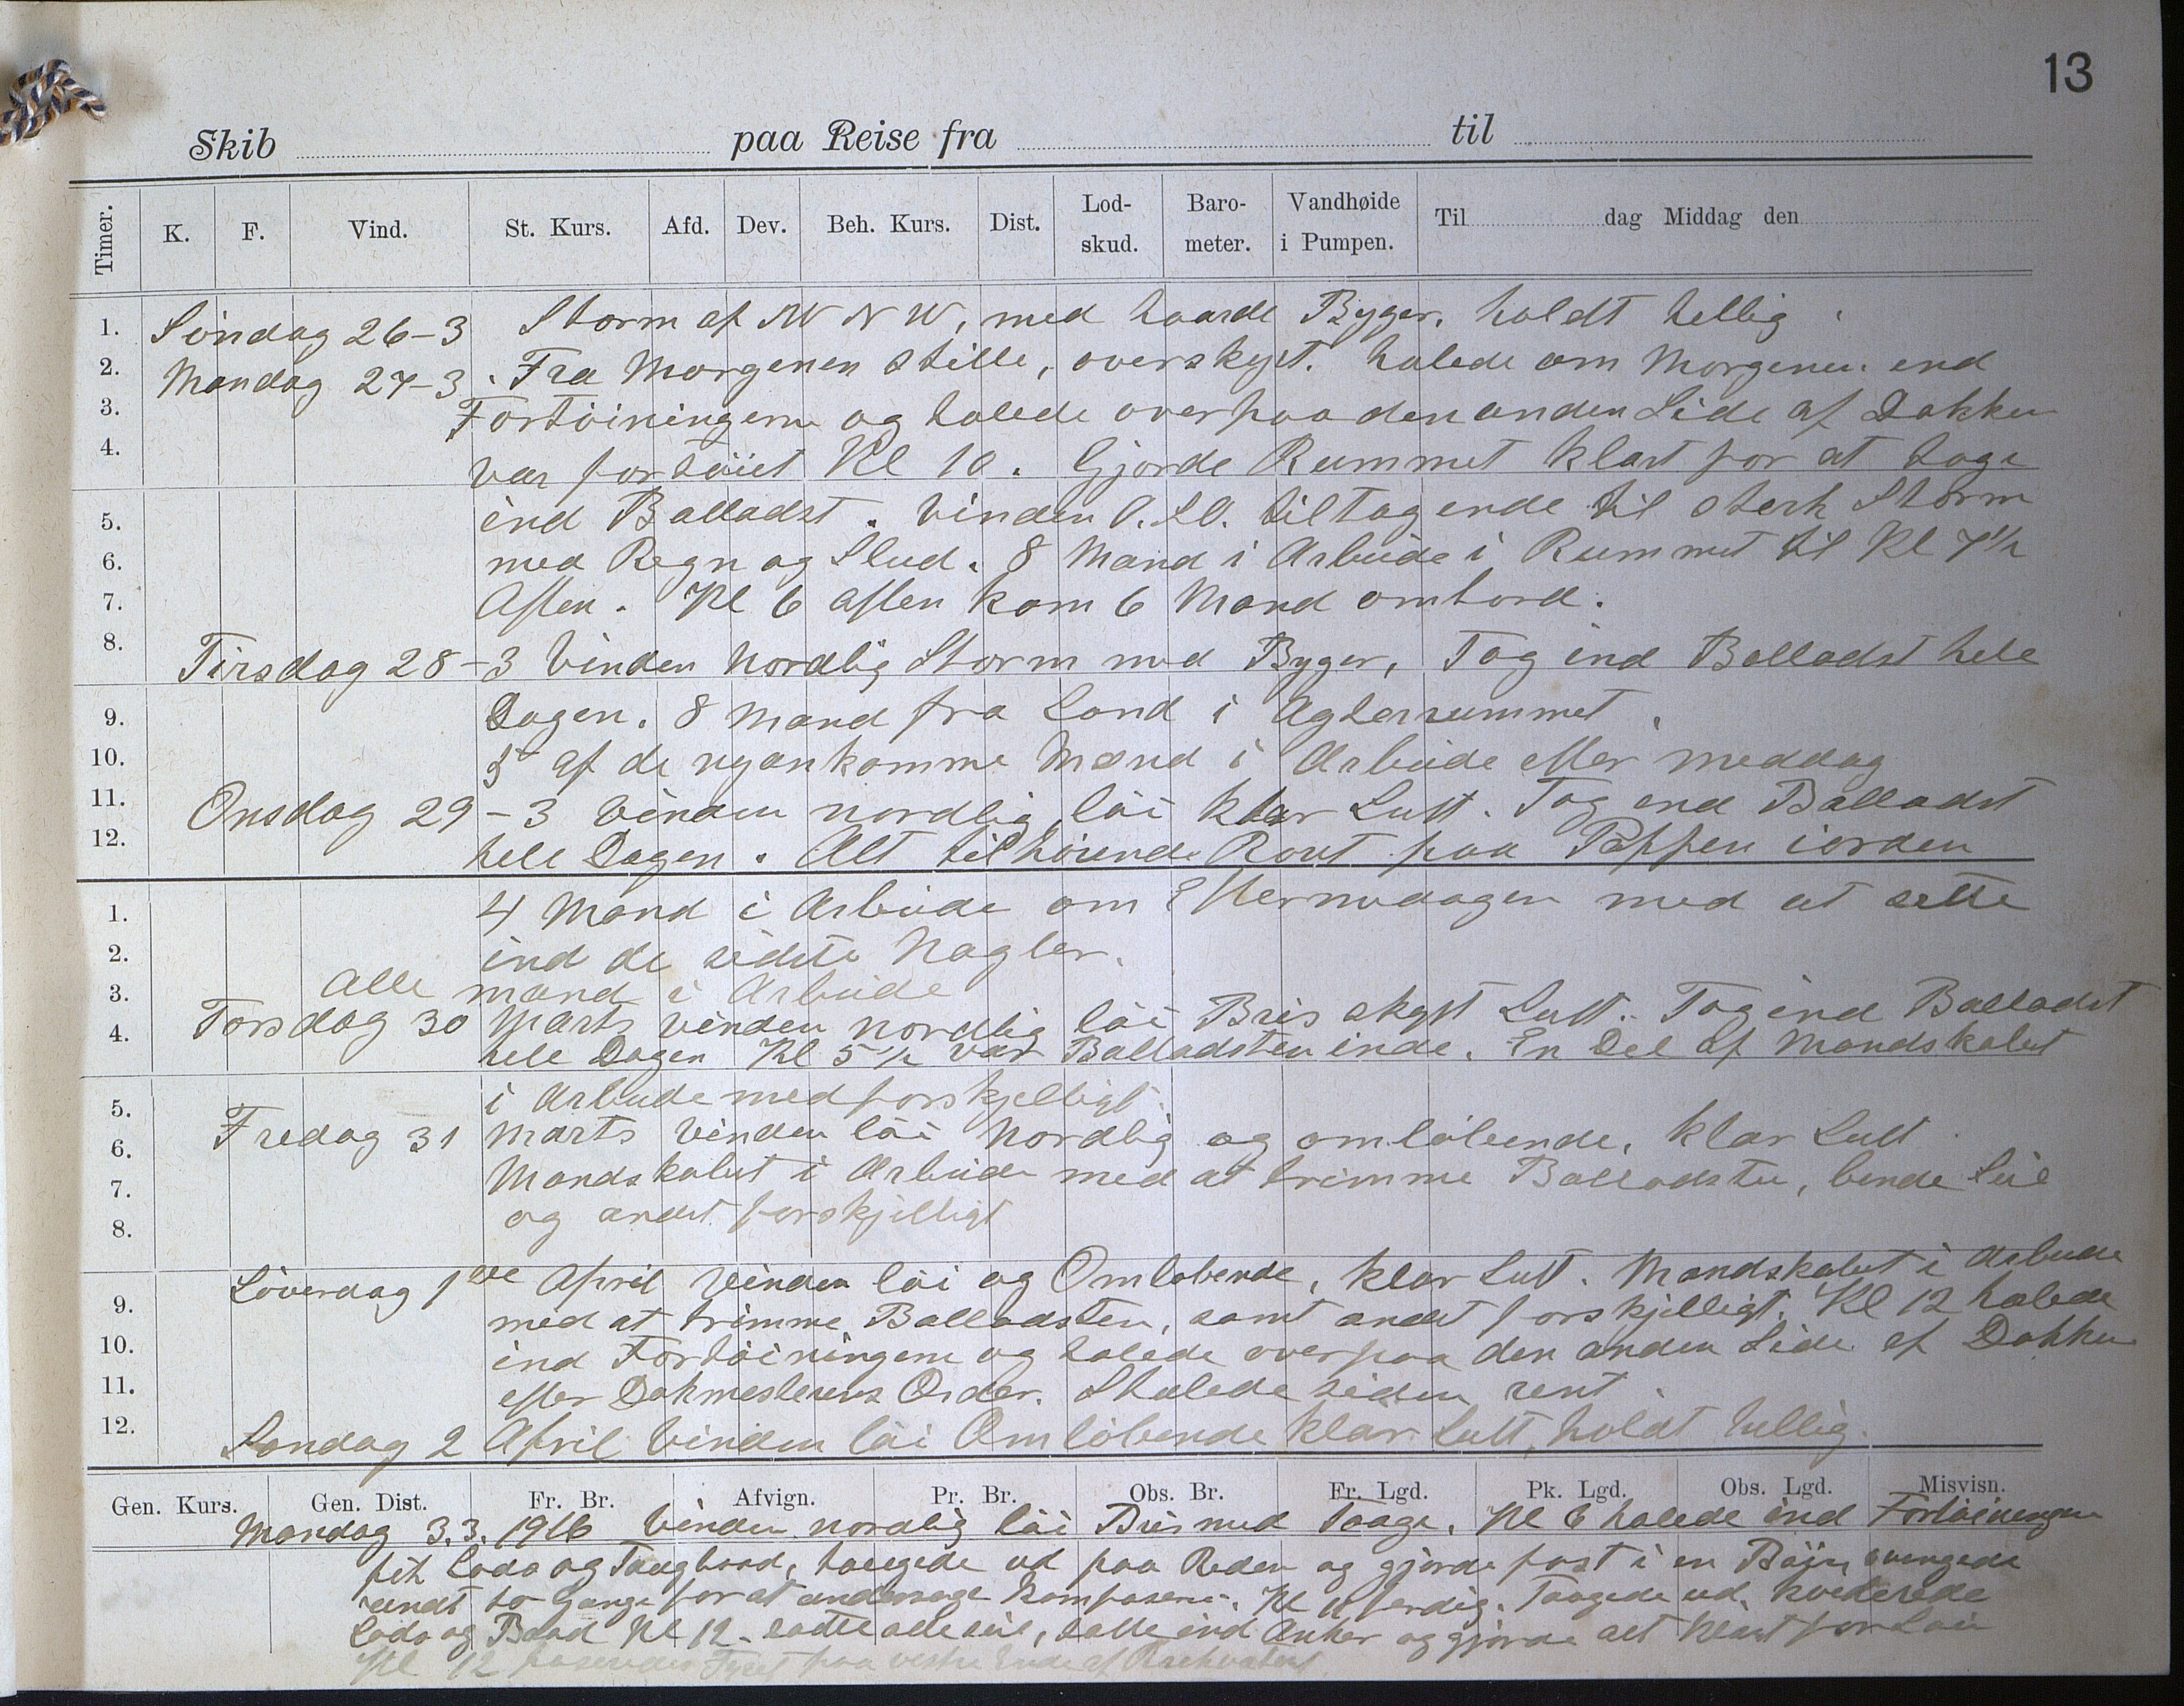 13
Skib paa Reise fra til
Timer. K. F. Vind. St. Kurs. Afd. Dev. Beh. Kurs. Dist. Lod-skud. Baro-meter. Vandhøide i Pumpen. Til dag Middag den
1. Söndag 26-3 Storm af NNW, med haarde Byger. holdt hellig.
2. Mandag 27-3. Fra Morgenen stille, overskyet. halede om Morgenen ind
3. Fortöiningerne og halede over paa den anden Side af Dokken
4. var fortöiet Kl 10. Gjorde Rummet klart for at tage
5. ind Balladst. Vinden O.SO. tiltagende til sterk Storm
6. med Regn og Slud. 8 Mand i Arbeide i Rummet til Kl 7 1/2
7. Aften. Kl 6 aften kom 6 Mand ombord.
8. Tirsdag 28-3 Vinden Nordlig Storm med Byger, Tog ind Balladst hele
9. Dagen. 8 Mand fra Land i Agterrummet.
10. 5 af de nyankomne Mænd i Arbeide efter meddag
11. Onsdag 29-3 Vinden nordlig, löi klar Luft. Tog ind Balladst
12. hele Dagen. Alt tilhörende Roret paa Poppen iorden
1. 4 Mand i Arbeide om Eftermidagen med at sette
2. ind de sidste Nagler.
3. Alle mand i Arbeide
4. Torsdag 30 Marts Vinden nordlig löi Bris skyet Luft. Tog ind Balladst
hele Dagen Kl 5 1/2 var Balladsten inde. En Del af Mandskabet
5. i Arbeide med forskjelligt.
6. Fredag 31 Marts Vinden löi Nordlig og omlöbende, klar Luft
7. Mandskabet i Arbeide med at trimme Balladsten, bende Seil
8. og andet forskjelligt
Löverdag 1ste April Vinden löi og Omlobende, klar Luft. Mandskabet i Arbeide
9. med at trimme Balladsten, samt andet forskjelligt. Kl 12 halede
10. ind Fortöiningene og halede over paa den anden Side af Dokken
11. efter Dokmesterens Order. Skulede siden rent.
12. Söndag 2 April Vinden löi Omlöbende klar Luft, holdt hellig.
Gen. Kurs. Gen. Dist. Fr. Br. Afvign. Pr. Br. Obs. Br. Fr. Lgd. Pk. Lgd. Obs. Lgd. Misvisn.
Mandag 3.3. 1916 Vinden nordlig löi Bris med Taage. Kl 6 halede ind Fortöiningen
fik Lods og Taugbaad, taugede ud paa Reden og gjorde fast i en Böje, svingede
rundt to Gange for at undersøge Kompasene. Kl 11 ferdig. Taugede ud. kviterede
Lods og Baad Kl 12. satte alle seil, satte ind Anker og gjorde alt klart for Söen
Kl 12 paserede Fyret paa vestre Ende af